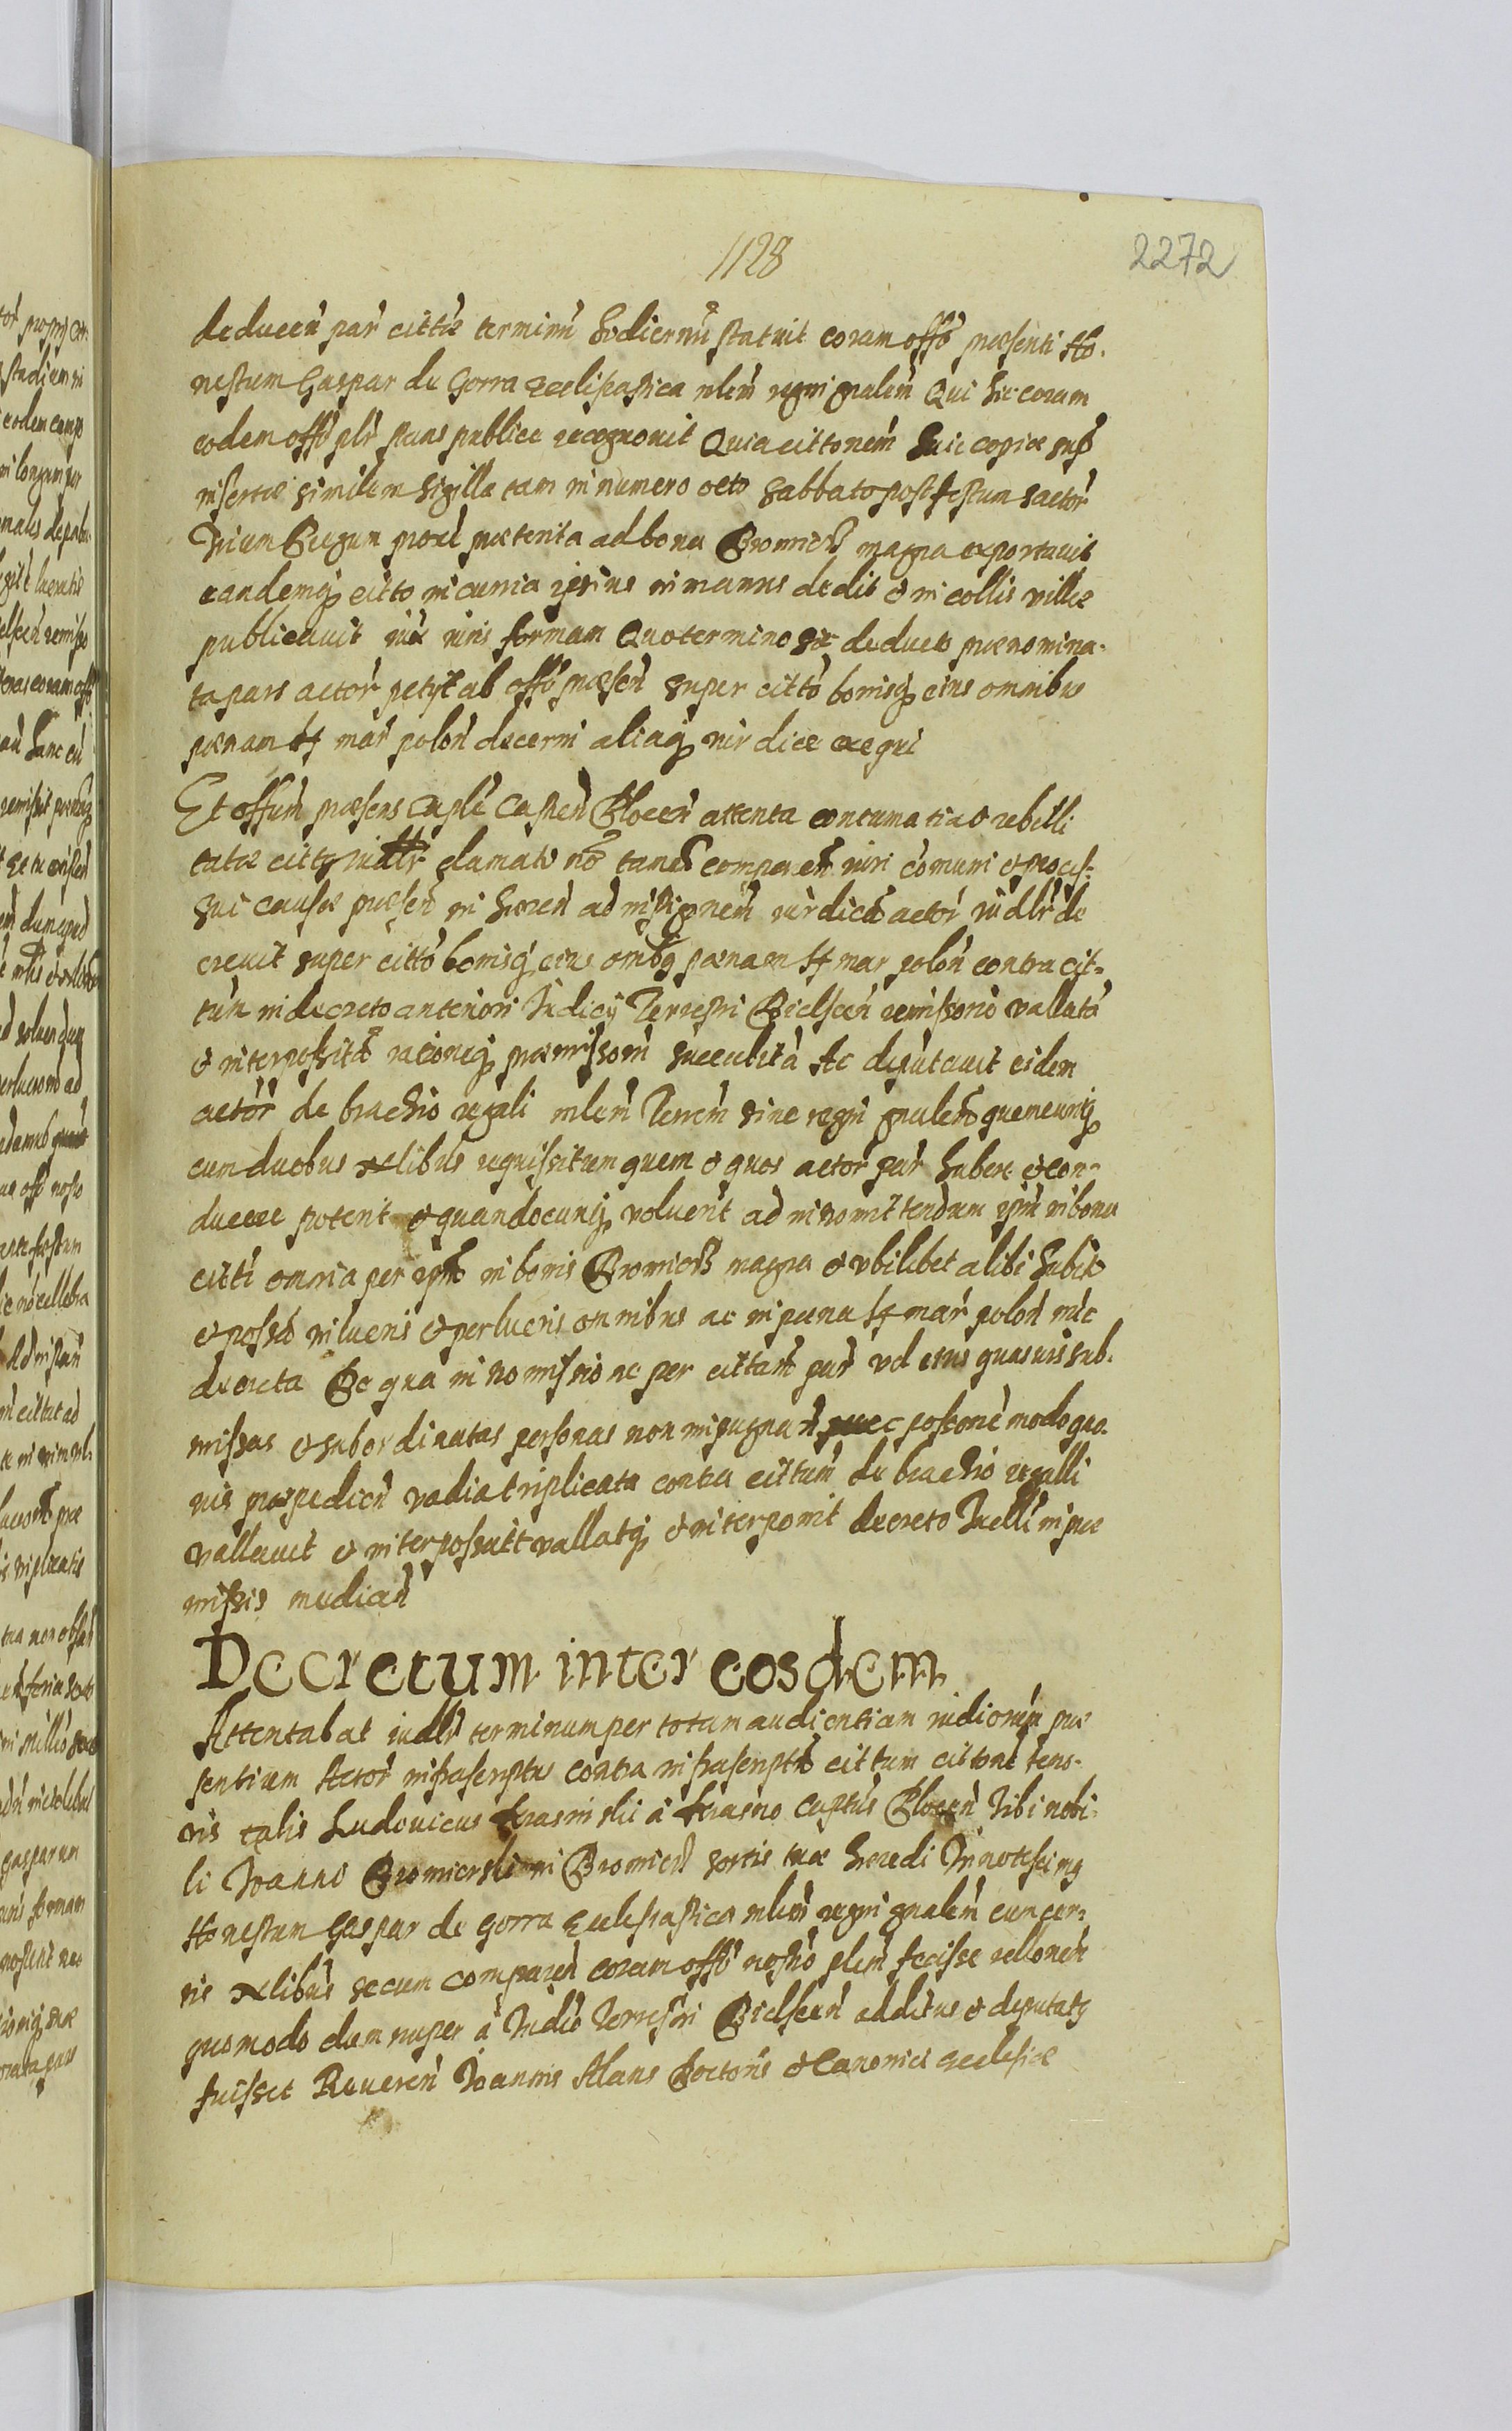 1128
2272
deducen par citti terminũ hodiernũ statuit coram offo præsenti Ho-
nestum Gaspar de Gorra Ecclisiastica mlem regni gnalem Qui hic coram
eodem offo plr stans publice recognovit Quia cittonem huic copiæ sup
insertæ similem sigilla tam in numero octo Sabbato post festum sactor
Trium Regum proxe præterita ad bona Bromierz magna exportavit
eandemq citto in curia ipsius in manus dedit & in collis villæ
publicavit iux iuris formam Quo termino sic deducto prænomina-
ta pars actor petyt ab offo præsen super citto bonisq eius omnibus
pænam H mar polon decerni aliaq iur dice exequi
Et offum præsens Capli Casten Plocen attenta contumatia & rebelli
tate citti clamati nõ tamen comparen iuri cõmuni & proces-
sui causæ præsen in hæren ad instignem iur dice actor iudlr de
crevit super citto bonisq eius omibq pænam H mar polon contra cit-
tum in decreto anteriori Iudicÿ Terrestri Bielscen remissorio vallata
& interposita rationeq præmissorũ succubita Ac deputavit eidem
actor de brachio regali mlem Terrem sive regni gnalem quemcunq
cum duobus xlibus requisitum quem & quos actor par habere & con-
ducere poterit & quandocunq voluerit ad inromittendum ipm in bona
citti omnia per ipm in bonis Bromierz magna & ubilibet alibi habita
& possa in lucris & perlucris omnibus ac in pæna H mar polon nuc
decreta De qua inromissio ne per cittum par vel eius quasvis sub-
missas & subordinatas personas non inpugnan nec postone modo quo-
vis præpedien vadia triplicata contra cittum de brachio regalli
vallavit & interpossuit vallatq & interponit decreto Iuelli in præ
missis median
Decretum inter eosdem
Attentabat iudlr terminum per totam audientiam iudiorum præ
sentium Actor infrascriptus contra infrascriptũ cittum cittone teno-
ris talis Ludovicus Krasinski à Krasne Captus Plocen Tibi nobi-
li Ioanni Bromierski in Bromierz sortis tuæ hæredi Innotescimq
Honestum Gaspar de Gorra Ecclesiastica mlem regni gnalem cum cer-
tis xlibus secum comparen coram offo nostro plem fecisse rellonem
quomodo dum nuper à Iudio Terrestri Bielscen additus & deputatq
fuisset Reveren Ioannis Alans Doctoris & Canonici Ecclesiæ